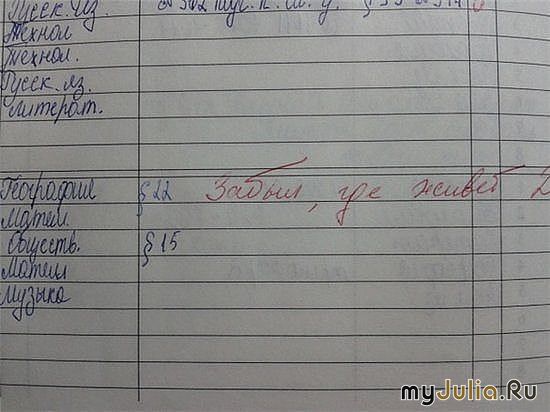 Русск. яз.
Технол
Технол.
Русск. яз.
Литерат.
География § 22 Забыл, где живёт
Матем.
Обществ. § 15
Матем
Музыка
myJulia.Ru